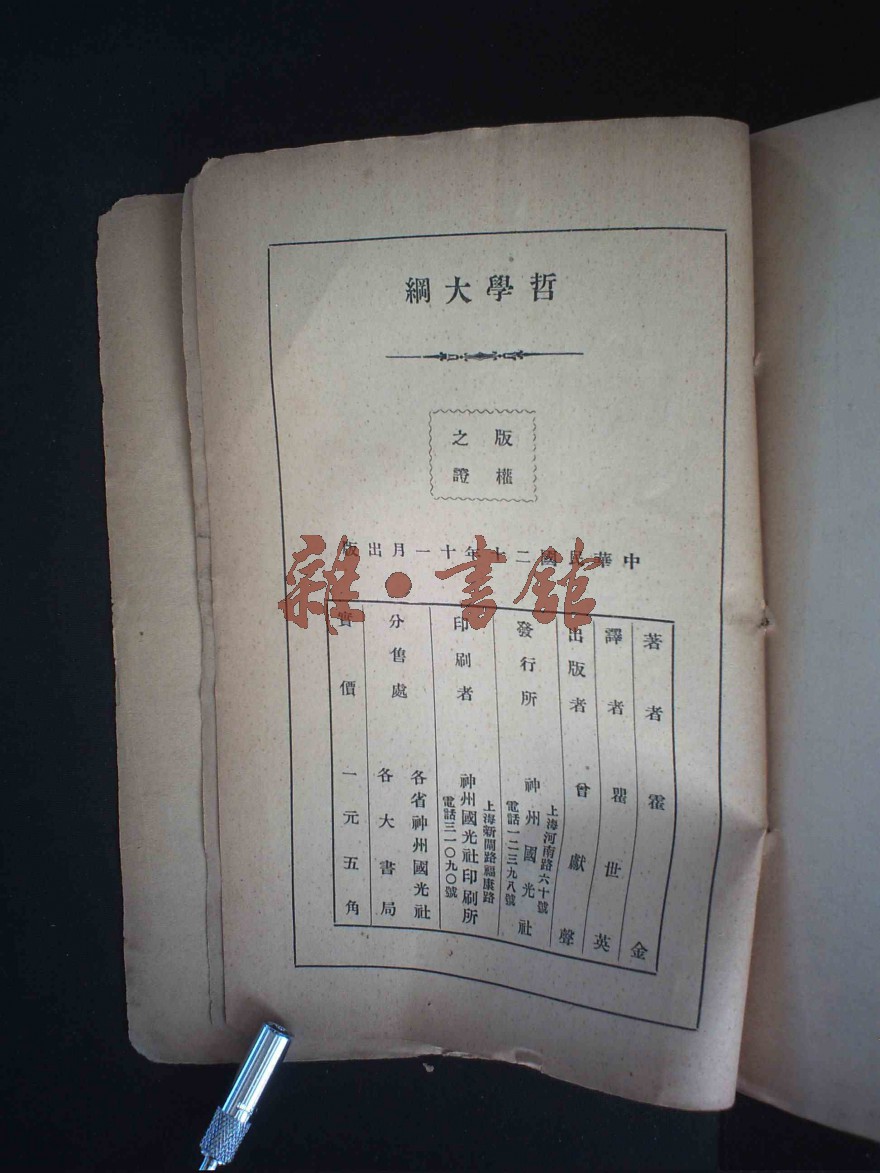 哲學大綱
版權
之證
中華民國二十年十一月出版
著者 霍金
譯者 瞿世英
出版者 曾獻聲
發行所 神州國光社
上海河南路六十號
電話一二三九八號
印刷者 神州國光社印刷所
上海新閘路福康路
電話三一〇九〇號
分售處 各省神州國光社
各大書局
實價 一元五角
雜·書館